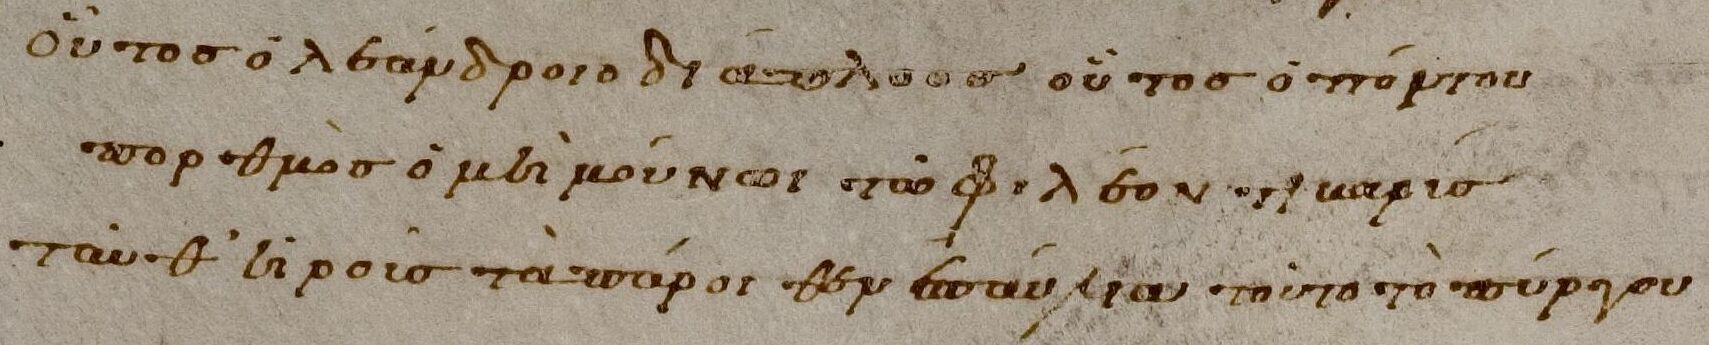 οὗτος ὁ λεάνδροιο διάπλοος οὗτος ὁ πόντου
πορθμὸς ὁ μὴ μούνωι τῶ φιλέοντι βαρύς
ταῦθ' ἡροῦς τὰ πάροιθεν ἐπαύλια τοῦτο τὸ πύργου